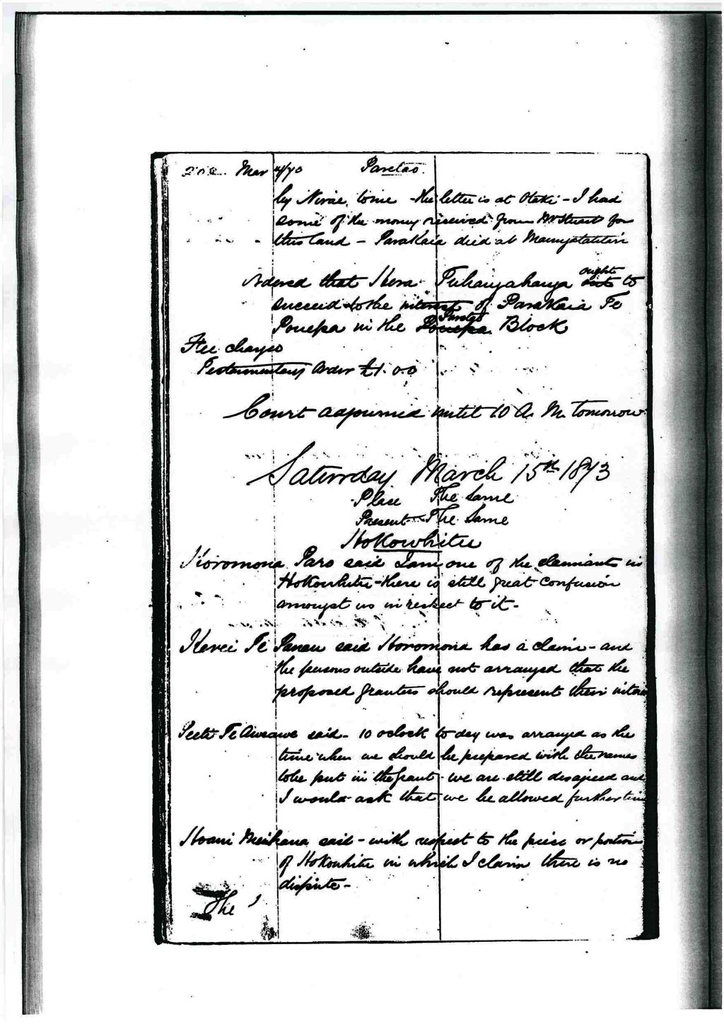 Mar Paretao.
by to me - the letter is at Otaki - I had
some of the money received from Mr Stuart for
this land - Parakaia died at
Ordered that Hora Tuhangahanga ought to
succeed to the interest of Parakaia Te
Pouepa in the Paretao Block
Fee charged
Order £1.0.0
Court adjourned until 10 A.M. tomorrow
Saturday March 15th 1873
Place The Same
Present The Same
Hokowhitu
Horomona Paro said I am one of the claimants in
Hokowhitu - there is still great confusion
amongst us in respect to it -
Te Panau said Horomona has a claim - and
the persons outside have not arranged that the
proposed grantees should represent their
Peeti Te Aweawe said - 10 oclock to day was arranged as the
time when we should be prepared with the names
to be put in the grant - we are still disagreed and
I would ask that we be allowed further
Hoani Meihana said - with respect to the piece or portion
of Hokowhitu in which I claim there is no
dispute -
The